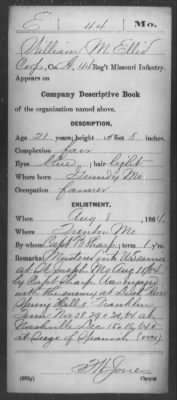 E 44 Mo.
William M. Ellis
Corp., Co. H, 44 Reg't Missouri Infantry.
Appears on
Company Descriptive Book
of the organization named above.
DESCRIPTION.
Age 21 years; height feet 8 inches.
Complexion fair
Eyes blue; hair light
Where born Grundy Mo
Occupation farmer
ENLISTMENT.
When Aug 8, 1864.
Where Trenton Mo
By whom Capt Sharp; term 1 y'rs.
Remarks: Mustered into US service
at St Joseph Mo Aug 1864
by Capt Sharp. Was engaged
with the enemy at
Spring Hill & Franklin
Tenn Nov 28 29 & 30, 64 at
Nashville Dec 15 & 16, 64
at Siege of Spanish (over)
Jones
Copyist.